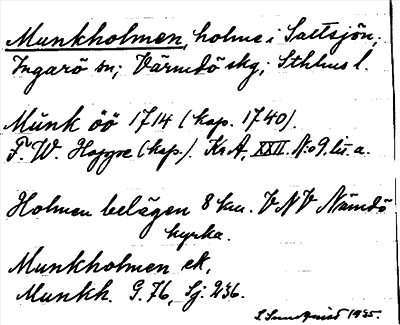 Munkholmen, holme i Saltsjön,
Ingarö sn; Värmdö skg; Sthlms l.
Munk öö 1714 (kop. 1740).
F. W. Hoppe (kop.). KrA, XXII. N:o 9. lit. a.
Holmen belägen 8 km. V N V Nämdö
kyrka.
Munkholmen ek,
Munkh. G. 76, Sj. 236.
1935.